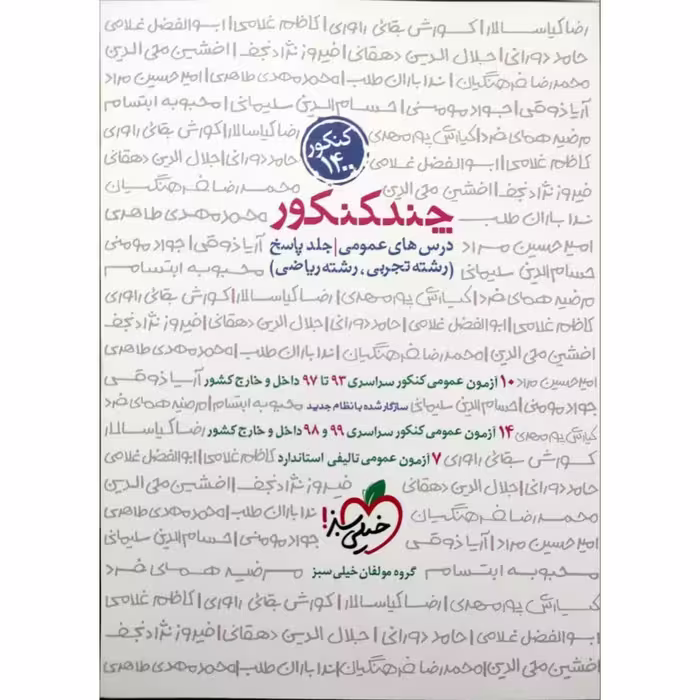 رضا کیاسالار|کورش بقائی راوری|کاظم غلامی|ابوالفضل غلامی
حامد دورانی|جلال الدین دهقانی|فیروز نژادنجف|افشین محی الدین
محمدرضا فرهنگیان|ندا باران طلب|محمدمهدی طاهری|امیرحسین مراد
آریا ذوقی|جواد مومنی|حسام الدین سلیمانی|محبوبه ابتسام
مرضیه همای فرد|کیارش پورمهدی
کنکور
۱۴۰۰
رضا کیاسالار|کورش بقائی راوری
کاظم غلامی|ابوالفضل غلامی
حامد دورانی|جلال الدین دهقانی
فیروز نژادنجف|افشین محی الدین
محمدرضا فرهنگیان
ندا باران طلب
چند کنکور
محمدمهدی طاهری
امیرحسین مراد
درس های عمومی|جلد پاسخ
آریا ذوقی|جواد مومنی
حسام الدین سلیمانی
(رشته تجربی، رشته ریاضی)
محبوبه ابتسام
مرضیه همای فرد|کیارش پورمهدی|رضا کیاسالار|کورش بقائی راوری
کاظم غلامی|ابوالفضل غلامی|حامد دورانی|جلال الدین دهقانی|فیروز نژادنجف
افشین محی الدین|محمدرضا فرهنگیان|ندا باران طلب|محمدمهدی طاهری
امیرحسین مراد
۱۰ آزمون عمومی کنکور سراسری ۹۳ تا ۹۷ داخل و خارج کشور
آریا ذوقی
جواد مومنی|حسام الدین سلیمانی
سازگار شده با نظام جدید
محبوبه ابتسام|مرضیه همای فرد
کیارش پورمهدی
۱۴ آزمون عمومی کنکور سراسری ۹۹ و ۹۸ داخل و خارج کشور
رضا کیاسالار
کورش بقائی راوری
۷ آزمون عمومی تالیفی استاندارد
کاظم غلامی|ابوالفضل غلامی
حامد دورانی|جلال الدین دهقانی
فیروز نژادنجف|افشین محی الدین
محمدرضا فرهنگیان
خیلی سبز!
ندا باران طلب|محمدمهدی طاهری
امیرحسین مراد|آریا ذوقی
جواد مومنی|حسام الدین سلیمانی
محبوبه ابتسام
گروه مولفان خیلی سبز
مرضیه همای فرد
کیارش پورمهدی|رضا کیاسالار|کورش بقائی راوری|کاظم غلامی
ابوالفضل غلامی|حامد دورانی|جلال الدین دهقانی|فیروز نژادنجف
افشین محی الدین|محمدرضا فرهنگیان|ندا باران طلب|محمدمهدی طاهری